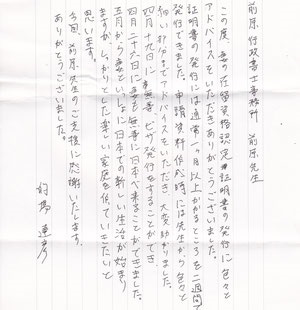 前原行政書士事務所　前原先生
この度、妻の在留資格認定証明書の発行に色々と
アドバイスをいただきありがとうございました。
証明書の発行には通常一ヶ月以上かかるところを二週間で
発行できました。申請資料作成時には先生から色々と
細い部分までアドバイスをいただき、大変助かりました。
四月十九日に無事ビザの発行をすることができ、
四月二十六日に妻も無事に日本へ来ることができました。
五月から妻といっしょに日本での新しい生活が始まり
ますが、しっかりとした楽しい家庭を築いていきたいと
思います。
今回、前原先生のご支援に感謝いたします。
ありがとうございました。